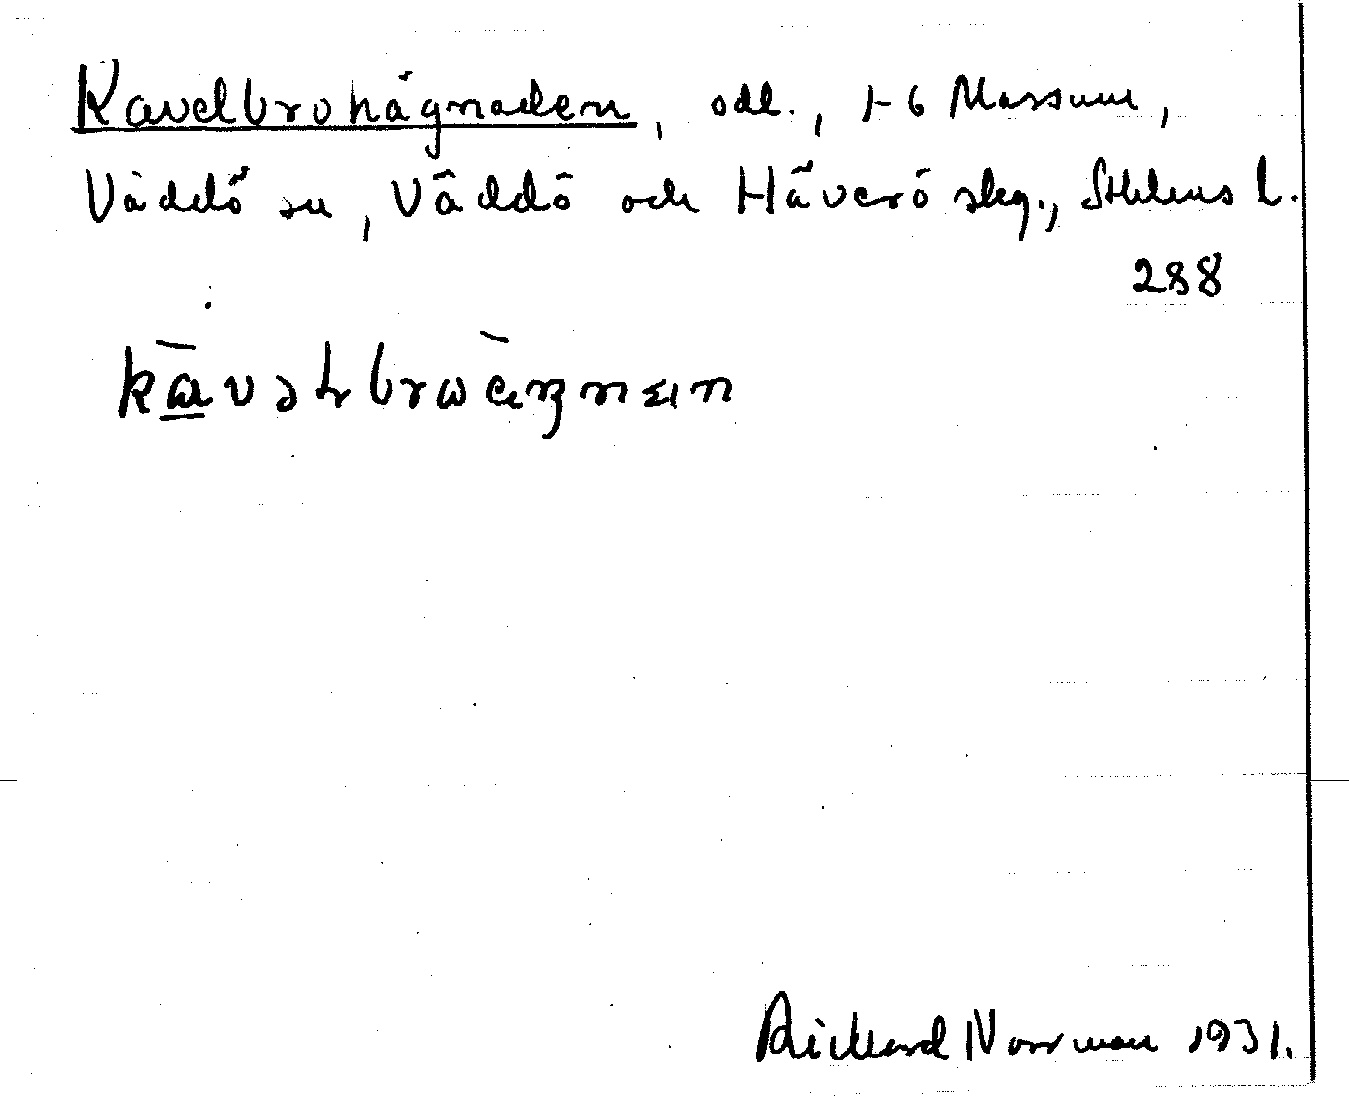 Kavelbrohägnaden, odl., 1-6 Massum,
Väddö sn, Väddö och Häverö skg., Sthlms l.
288
Rickard Norrman 1931.